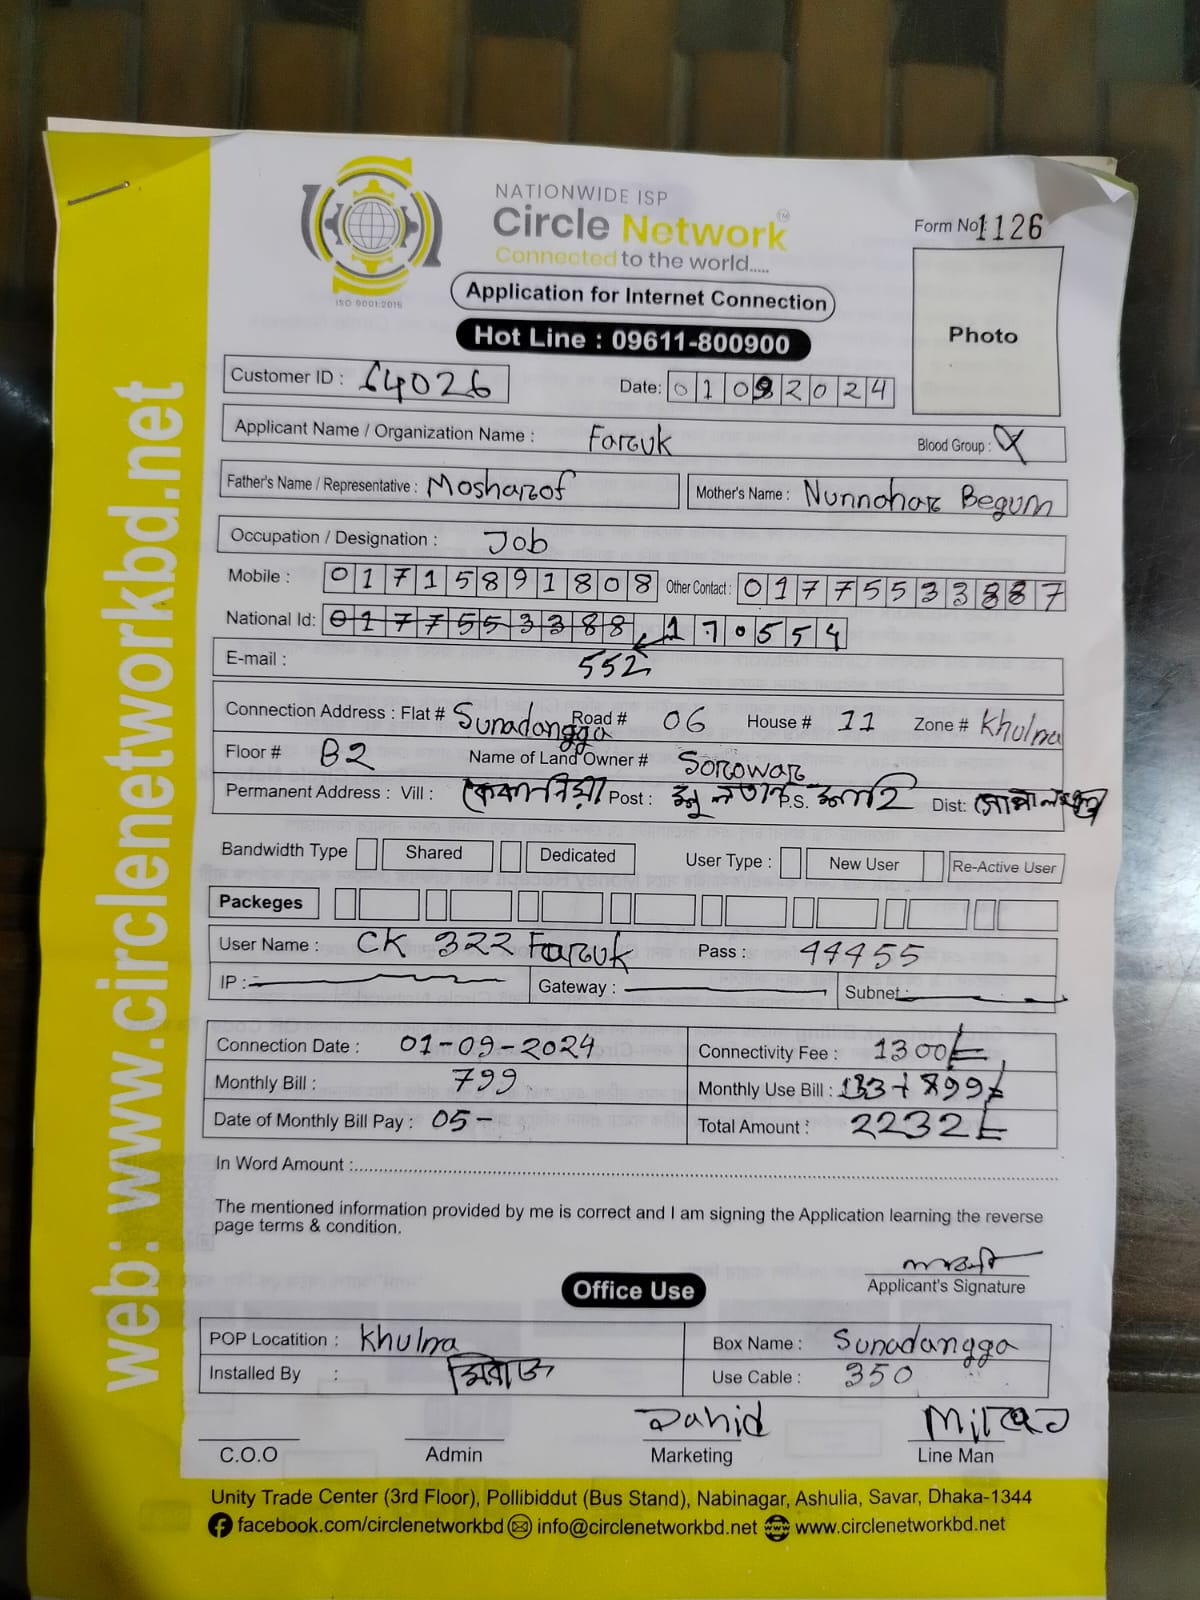 NATIONWIDE ISP
Circle Network™
Connected to the world.....
ISO 9001:2015
Form No: 1126
Application for Internet Connection
Hot Line : 09611-800900
Photo
Customer ID : 64026
Date: 01092024
Applicant Name / Organization Name : Faruk
Blood Group :
Father's Name / Representative : Mosharof
Mother's Name : Nunnohar Begum
Occupation / Designation : Job
Mobile : 01715891808 Other Contact : 01775533887
National Id: 01775533888 170554
E-mail : 552
Connection Address : Flat # Sunadangga Road # 06 House # 11 Zone # Khulna
Floor # B2 Name of Land Owner # Sorowar
Permanent Address : Vill : Post : P.S. Dist:
Bandwidth Type Shared Dedicated User Type : New User Re-Active User
Packeges
User Name : CK 322 Faruk Pass : 44455
IP : Gateway : Subnet :
Connection Date : 01-09-2024 Connectivity Fee : 1300/=
Monthly Bill : 799 Monthly Use Bill : 133+899/
Date of Monthly Bill Pay : 05- Total Amount : 2232/=
In Word Amount :
The mentioned information provided by me is correct and I am signing the Application learning the reverse
page terms & condition.
Applicant's Signature
Office Use
POP Locatition : Khulna Box Name : Sunadangga
Installed By : মিরাজ Use Cable : 350
Zahid Miraj
C.O.O Admin Marketing Line Man
Unity Trade Center (3rd Floor), Pollibiddut (Bus Stand), Nabinagar, Ashulia, Savar, Dhaka-1344
facebook.com/circlenetworkbd info@circlenetworkbd.net www.circlenetworkbd.net
web: www.circlenetworkbd.net